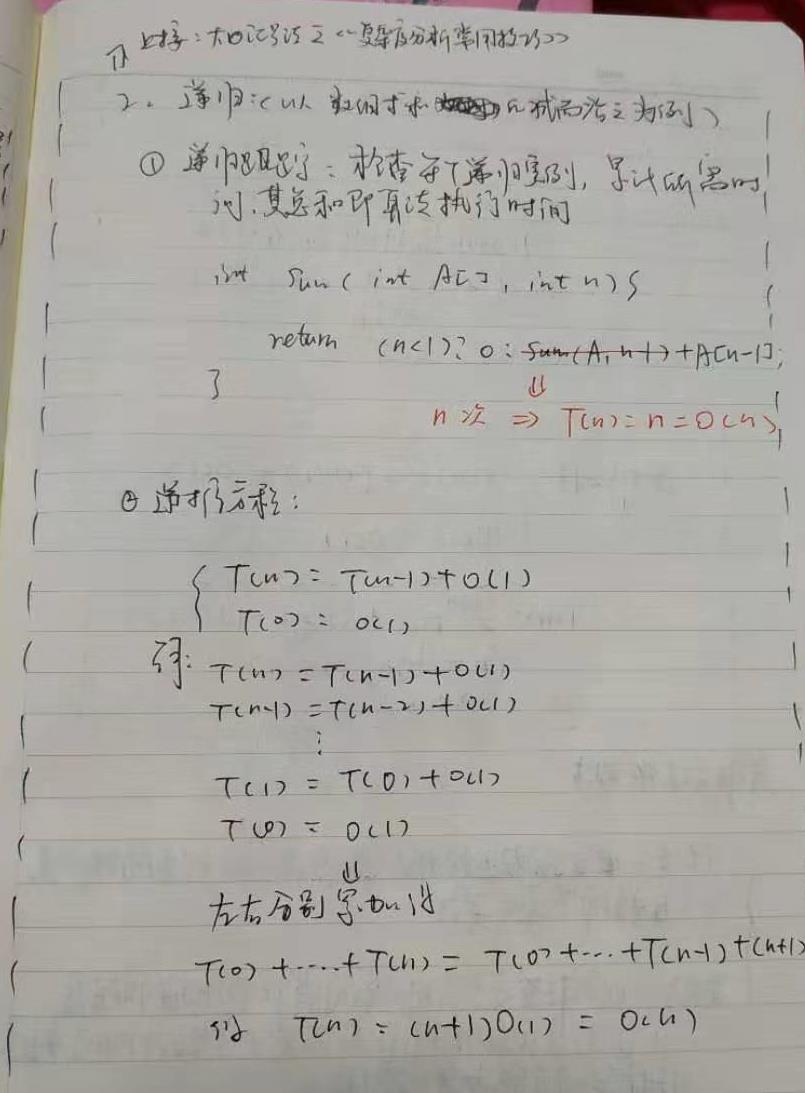 上接：大O记号法之<<复杂度分析常用技巧>>
2. 递归：（以数组求和 减而治之为例）
① 递归跟踪：检查每个递归实例，累计所需时
间，其总和即算法执行时间
int Sum( int A[], int n){
return (n<1)? 0 : Sum(A, n-1) + A[n-1];
}
⇓
n次 ⇒ T(n) = n = O(n)
② 递推方程：
{ T(n) = T(n-1) + O(1)
T(0) = O(1)
T(n) = T(n-1) + O(1)
T(n-1) = T(n-2) + O(1)
⋮
T(1) = T(0) + O(1)
T(0) = O(1)
⇓
左右分别累加得
T(0) + ····· + T(n) = T(0) + ··· + T(n-1) + (n+1)
得 T(n) = (n+1)O(1) = O(n)